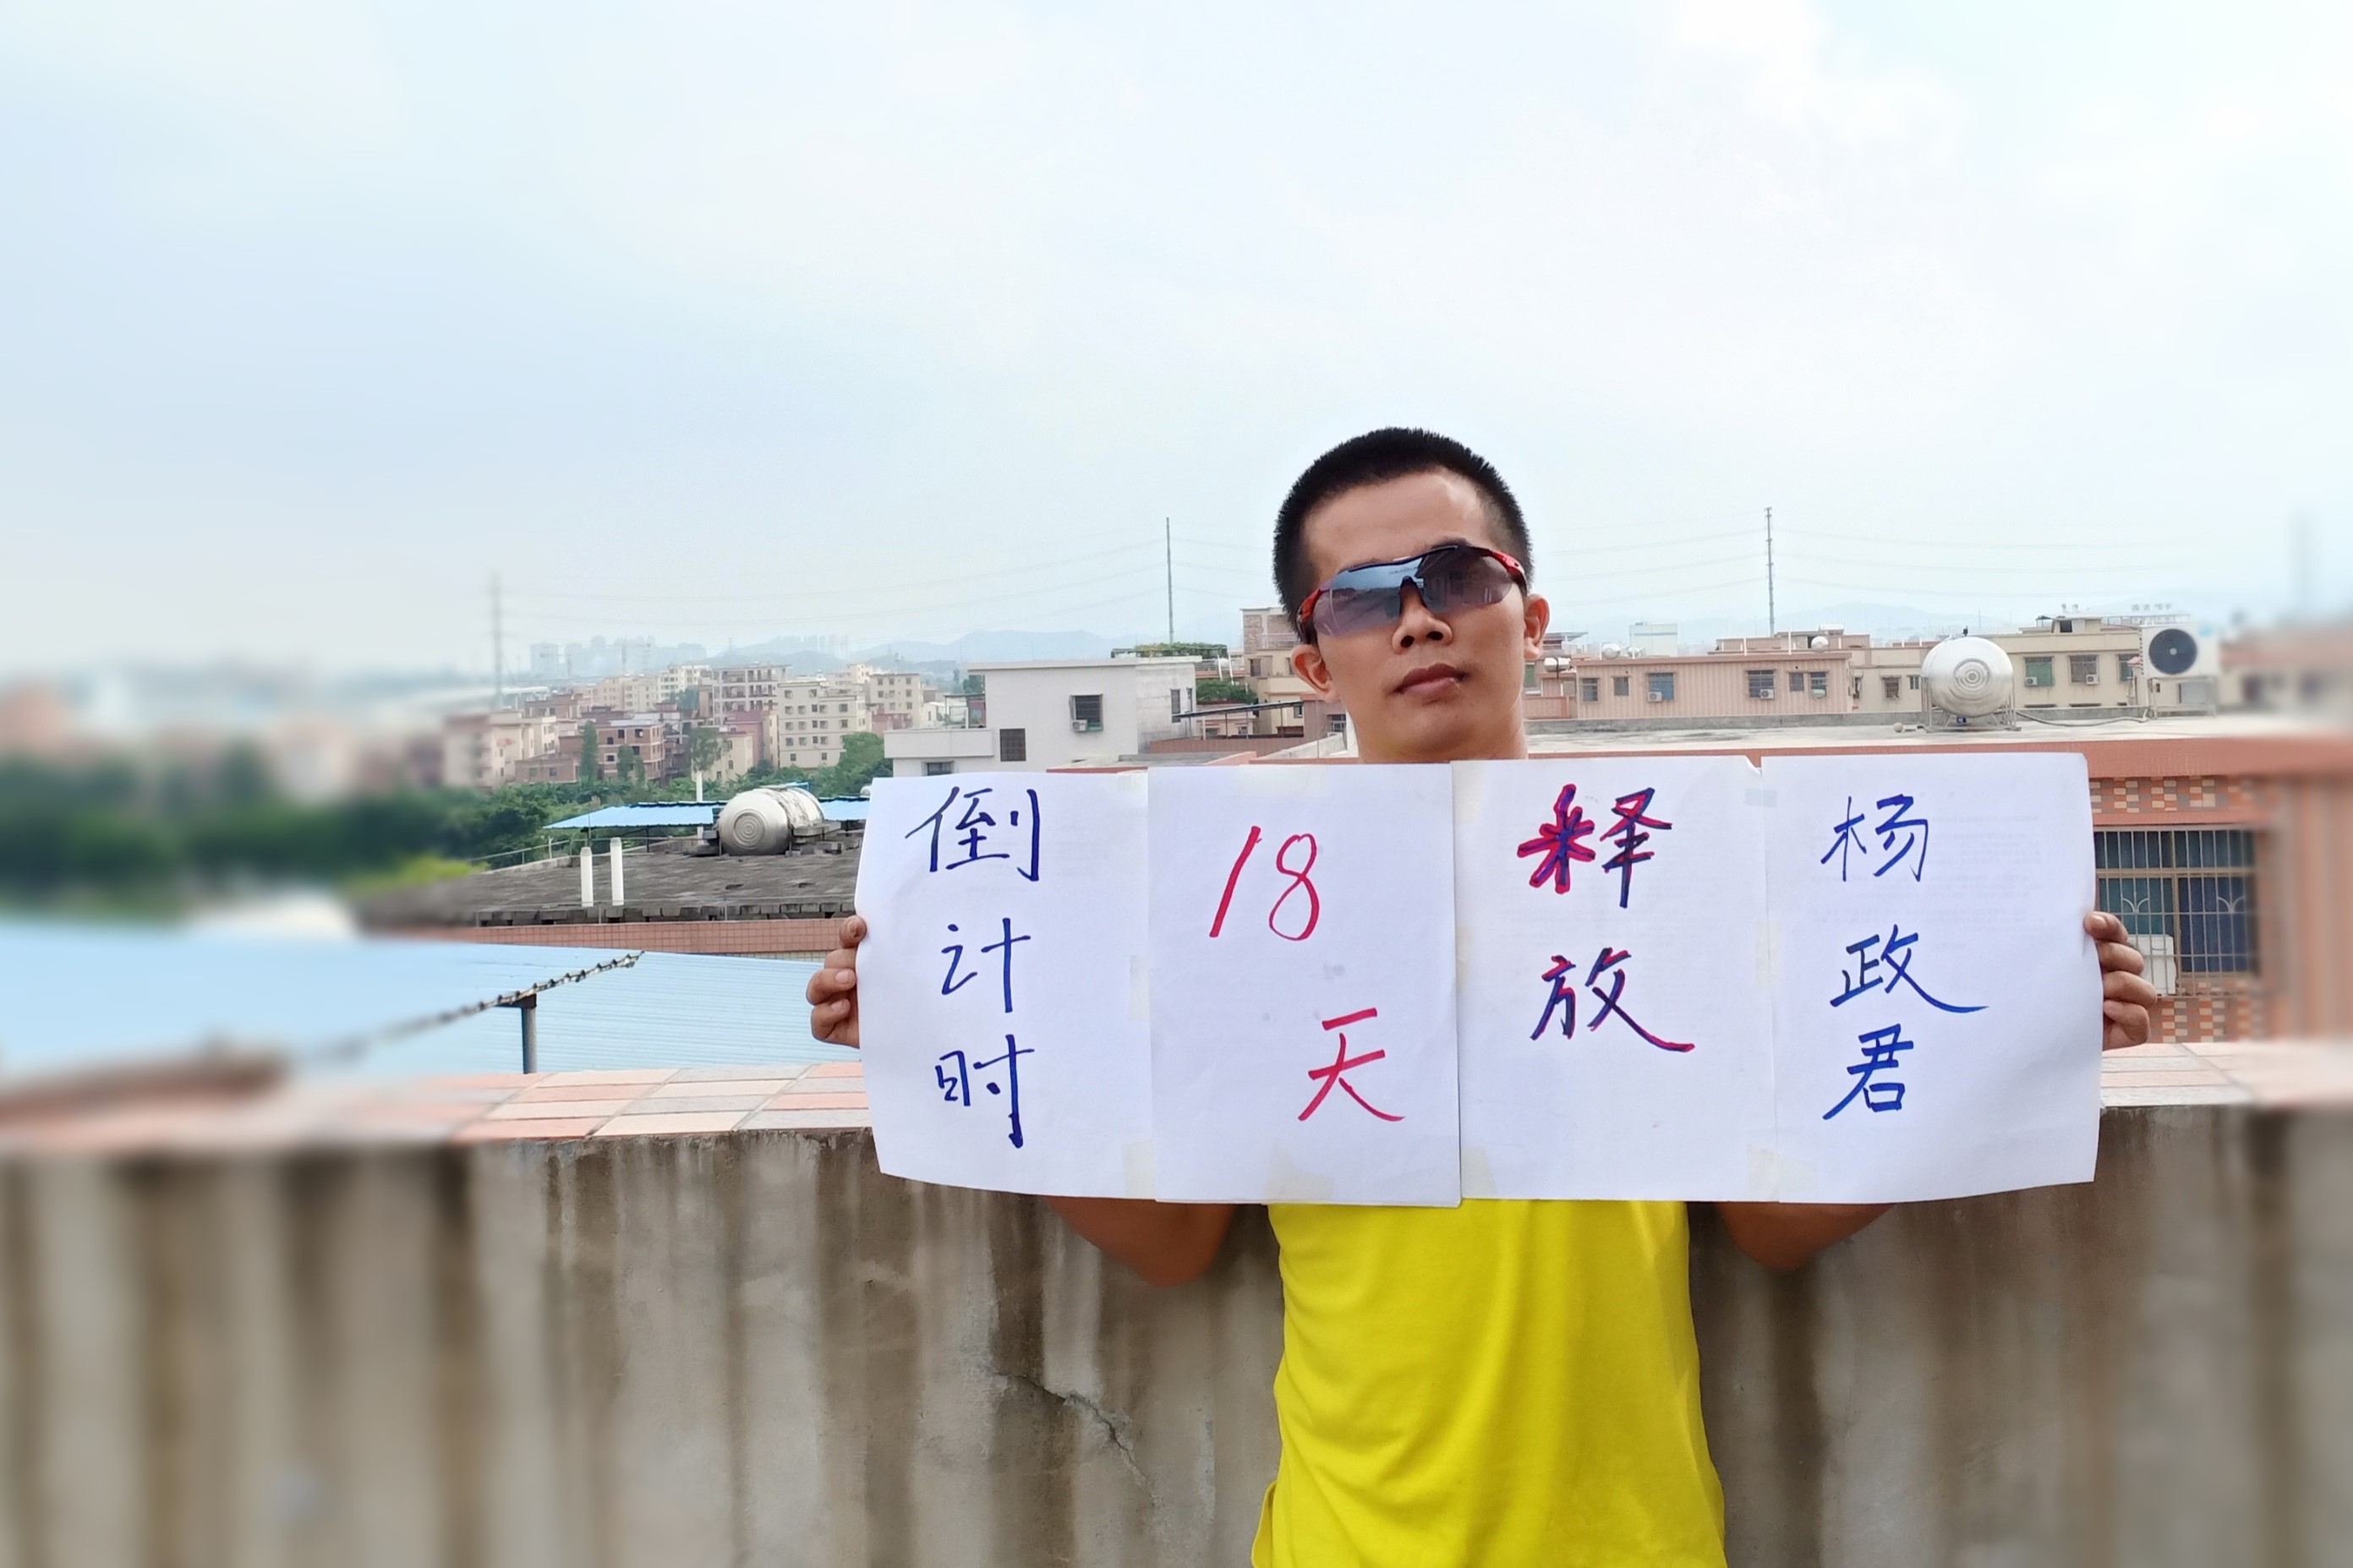 倒计时
18天
释放
杨政君